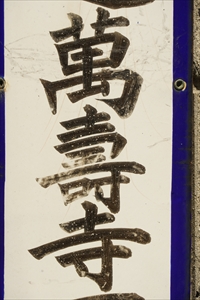 萬壽寺